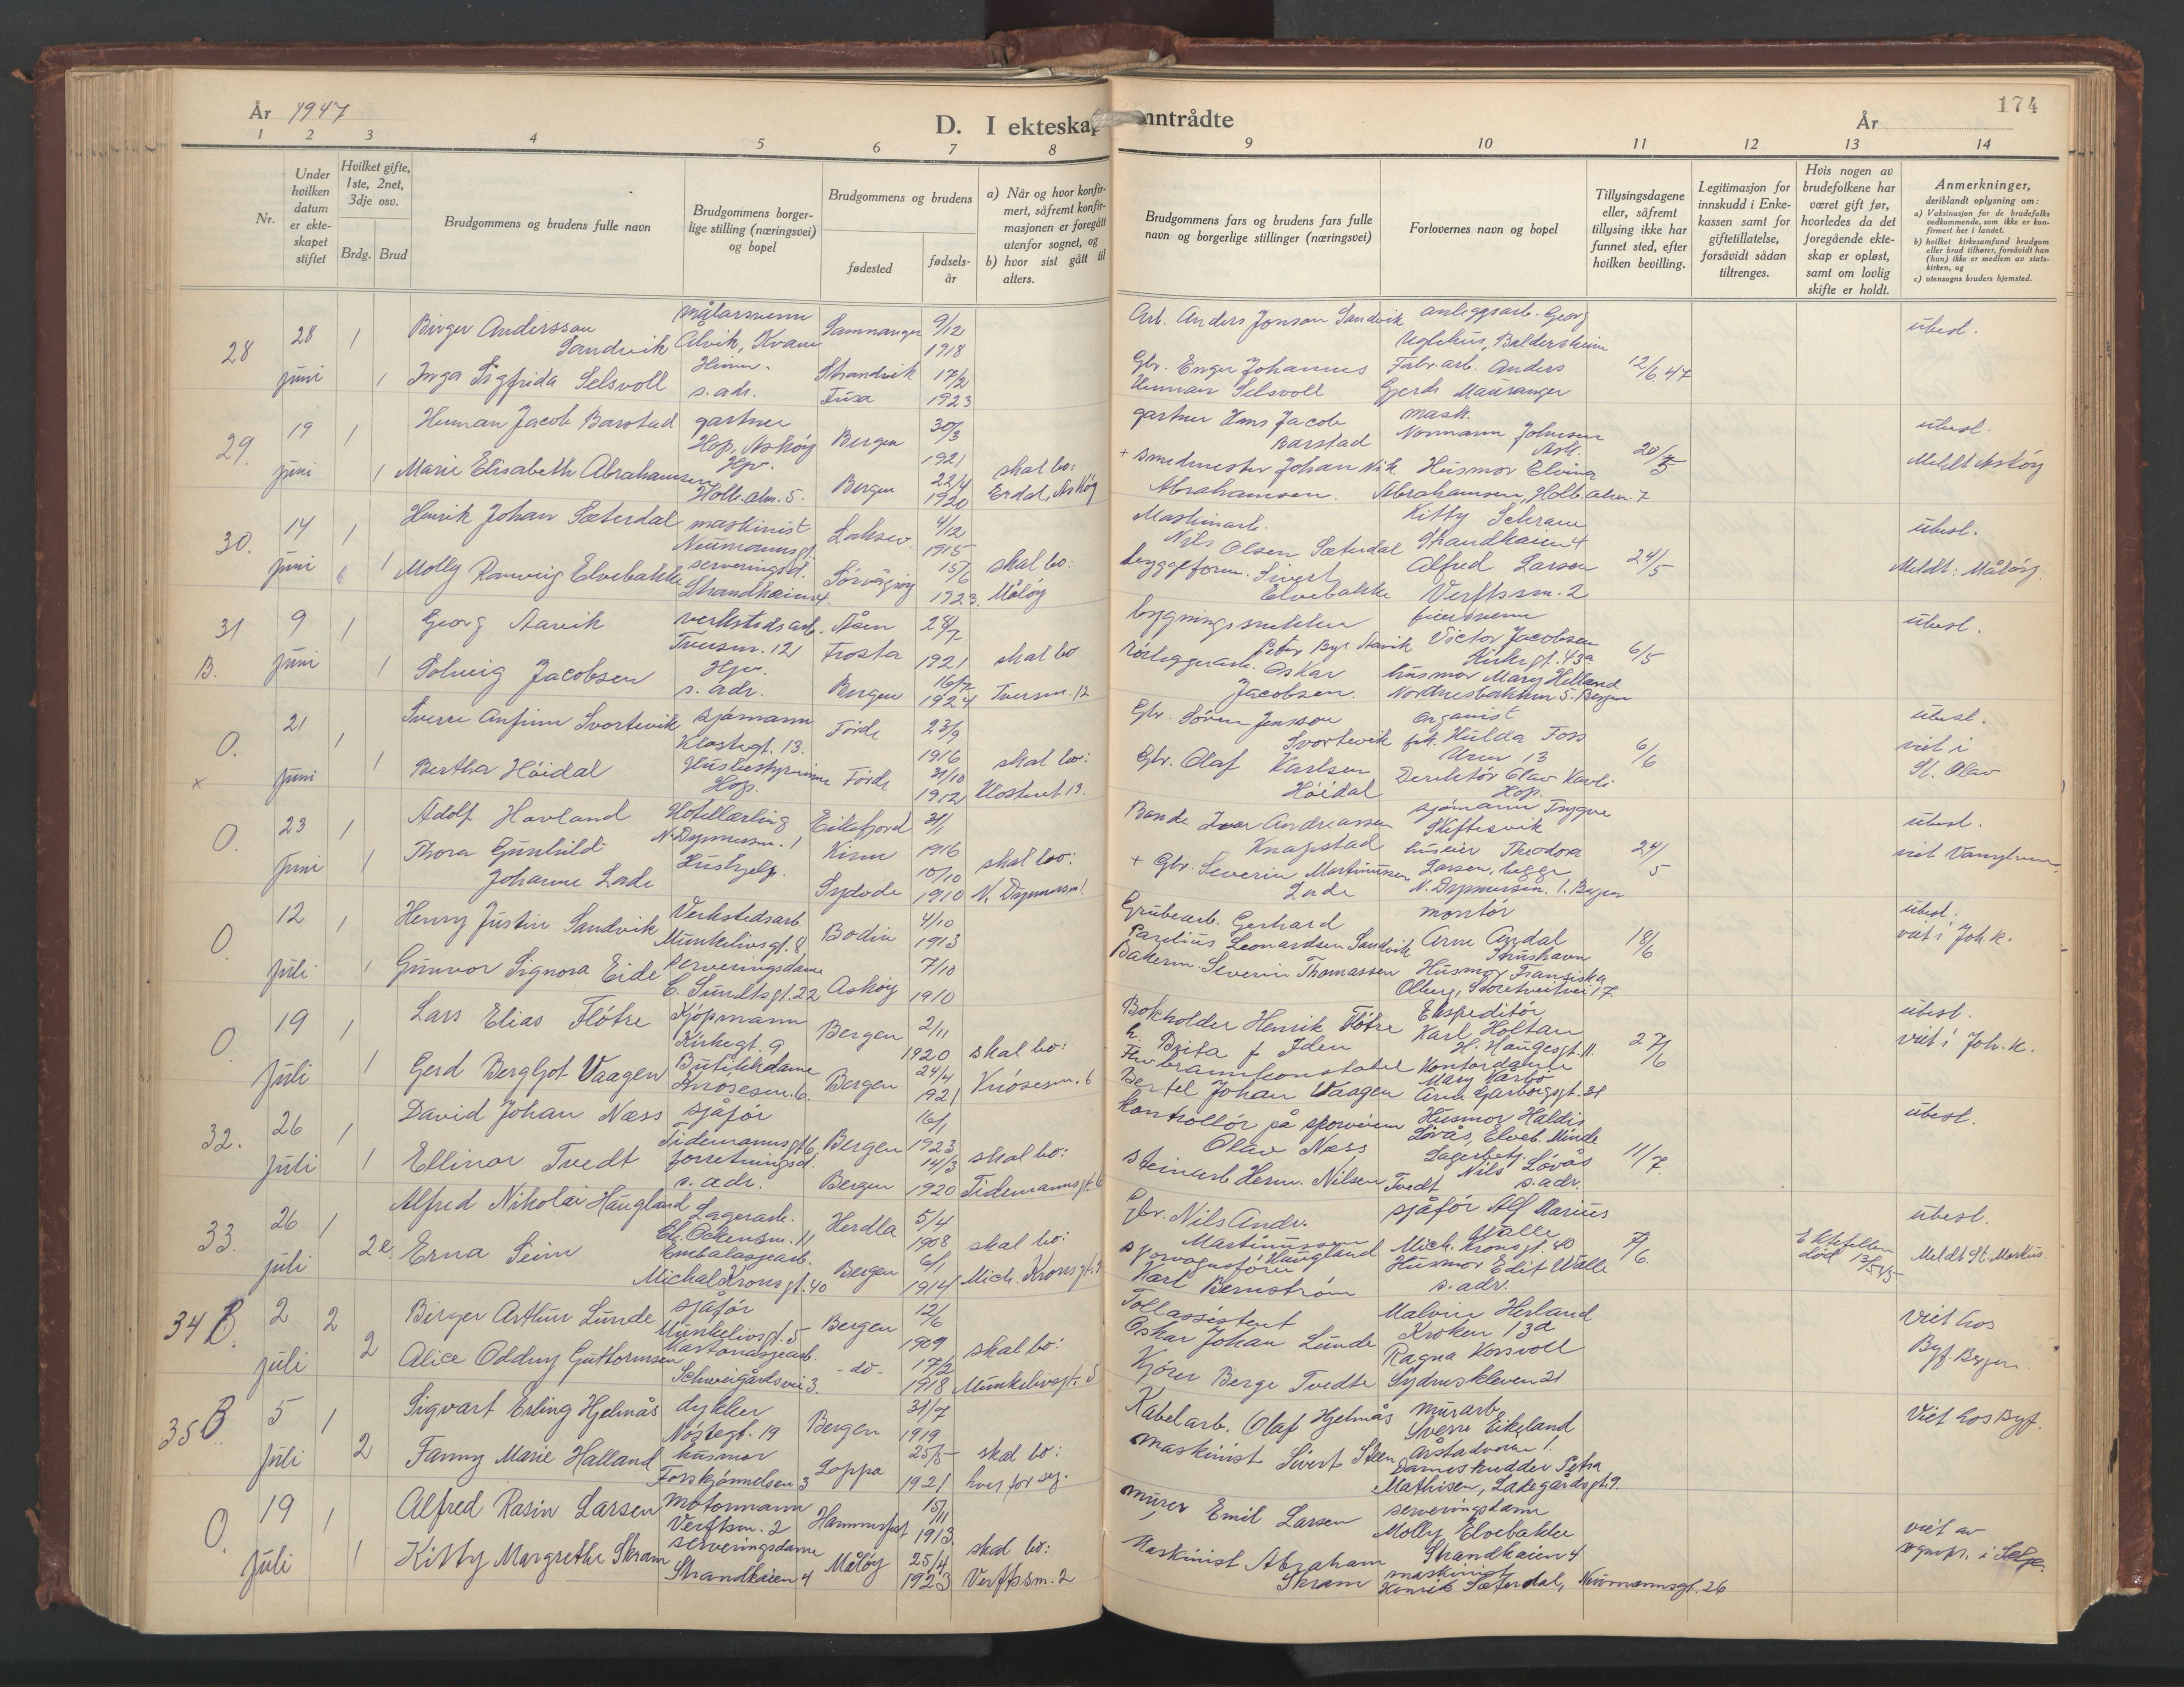 174
År 1947
D. I ekteskap inntrådte
År
1 2 3 4 5 6 7 8 9 10 11 12 13 14
Nr.
Under hvilken datum er ekteskapet stiftet
Hvilket gifte, 1ste, 2net, 3dje osv.
Brdg. Brud
Brudgommens og brudens fulle navn
Brudgommens borgerlige stilling (næringsvei) og bopel
Brudgommens og brudens
fødested
fødselsår
a) Når og hvor konfirmert, såfremt konfirmasjonen er foregått utenfor sognet, og
b) hvor sist gått til alters.
Brudgommens fars og brudens fars fulle navn og borgerlige stillinger (næringsvei)
Forlovernes navn og bopel
Tillysingsdagene eller, såfremt tillysing ikke har funnet sted, efter hvilken bevilling.
Legitimasjon for innskudd i Enkekassen samt for giftetillatelse, forsåvidt sådan tiltrenges.
Hvis nogen av brudefolkene har været gift før, hvorledes da det foregående ekteskap er opløst, samt om lovlig skifte er holdt.
Anmerkninger, deriblandt oplysning om:
a) Vaksinasjon for de brudefolks vedkommende, som ikke er konfirmert her i landet.
b) hvilket kirkesamfund brudgom eller brud tilhører, forsåvidt han (hun) ikke er medlem av statskirken, og
c) utensogns bruders hjemsted.
28 28 juni 1 Birger Anderssen Sandvik målarsvenn Ålvik, Kvam Samnanger 9/12 1918 Arb. Anders Jonson Sandvik anleggsarb. Georg Uglehus, Baldersheim 12/6 47 ubesl.
1 Inga Sigfrida Selsvoll s. adr. Strandvik Fusa 17/2 1923 Gbr. Johannes Selsvoll Fabr.arb. Anders Gjerde Mauranger
29. 19 juni 1 Herman Jacob Barstad gartner Hop, Askøy Bergen 30/3 1921 skal bo: gartner Hans Jacob Barstad mask. Normann Johnsen Ask. 20/5 ubesl.
1 Marie Elisabeth Abrahamsen Hjv. Holb.alm. 5. Bergen 22/4 1920 Erdal, Askøy + smedmester Johan Nik. Abrahamsen. Husmor Elvina Abrahamsen, Holb.alm. 7 Meldt Askøy
30. 14 juni 1 Henrik Johan Sæterdal maskinist Neumannsgt. Laksev. 4/12 1915 skal bo: Maskinarb. Nils Olsen Sæterdal Kitty Schram Strandkaien 4 24/5 ubesl.
1 Molly Ranveig Elvebakke serveringsd. Strandkaien 4. Sørvågøy 15/6 1923. Måløy byggeform. Sivert Elvebakke Alfred Larsen Verftssm. 2 Meldt: Måløy.
31 B. 9 juni 1 Georg Aavik verkstedsarb. Tversm. 12 Åsen Frosta 28/7 1921 skal bo bygningssnekker Peter Aavik Victor Jacobsen Kirkegt. 43a 6/5 ubesl.
1 Solveig Jacobsen Hjv. s. adr. Bergen 16/7 1924 Tversm. 12 rørleggerarb. Oskar Jacobsen. husmor Mary Helland Nordnesbakken 5. Bergen
O. x 21 Juni 1 Sverre Anfinn Svortevik sjømann Klostergt. 13. Førde 23/9 1916 skal bo: Gbr. Søren Jensson Svortevik organist frk. Hulda Foss 13 6/6 ubesl. viet i St. Olav
1 Bertha Høidal Husbestyrerinne Hop. Førde 31/10 1912 Klostergt 13. Gbr. Olaf Karlsen Høidal Direktør Olav Kavli Hop.
O. 23 Juni 1 Adolf Havland Hotellærling N. Dypmersm. 1 Eikefjord Kinn 31/1 1916 skal bo: Bonde Ivar Andreassen Knapstad sjømann Trygve Skiftesvik 24/5 ubesl.
1 Thora Gunhild Johanne Lade Hushjelp Sydvde 10/10 1910 N. Dypmersm 1 + Gbr. Severin Martinussen Lade huseier Theodora Larsen, begge N. Dypmersm. 1. Bergen
O. 12 Juli 1 Henry Justin Sandvik Verkstedsarb. Munkelivsgt. 8 Bodin 4/10 1913 Grubearb. Gerhard Paulius Leonardsen Sandvik montør Arne Andal Strushavn 18/6 ubesl. viet i Joh. k.
1 Gunvor Signora Eide serveringsdame C. Sundtsgt. 22 Askøy 7/10 1910 Bakerm Severin Thomassen Husmor Fransiska Olberg, Storetveitvei 17
O. 19 Juli 1 Lars Elias Fløtre Kjøpmann Kirkegt. 9 Bergen 2/11 1920 skal bo: Bokholder Henrik Fløtre Ekspeditør Karl Holtan H. Haugesgt. 11. 27/6 ubesl. viet i Joh. k.
1 Gerd Bergljot Vaagen Butikkdame Knøsesm. 6. Bergen 24/4 1921 Knøsesm. 6 brannkonstabel Bertel Johan Vaagen Kontordame Mary Karbø Arne Garborgsgt. 31
32. 26 Juli 1 David Johan Næss sjåfør Tidemannsgt 6 Bergen 16/1 1923 skal bo: kontrollør på sporveien Olav Næss Husmor Haldis Løvås, Elveb. Minde 11/7 ubesl.
1 Ellinor Tvedt forretningsd. s. adr. Bergen 14/3 1920 Tidemannsgt. 6 Steinarb Herm. Nilsen Tvedt Lagerbetj. Nils Løvås s. adr.
33. 26 juli 1 Alfred Nikolai Haugland Lagerarb. Bl. Ockensm. 11 Herdla 5/4 1908 skal bo: Gbr. Nils Andr. Martinussen Haugland sjåfør Alf Marius Walle Mich. Kronsgt. 40 7/6. ubesl.
2 Erna Seim Embalasjearb. Michal Kronsgt. 40 Bergen 6/1 1914 Mich. Kronsgt. sporvognsfører Karl Bernstrøm Husmor Edit Walle s. adr. Ektefellen død 13/5 45 Meldt St. Markus.
34 B. 2 juli 2 Birger Arthur Lunde sjåfør Munkelivsgt. 5 Bergen 12/6 1909 skal bo: Tollassistent Oskar Johan Lunde Malvin Herland Kroken 13a Viet hos Byf. Bergen
2 Alice Oddny Guttormsen Kartonasjearb. Schweigårdsvei 3. -do- 17/2 1918 Munkelivsgt. 5 Kjører Berge Tvedte Ragna Kossvoll Sydneskleven 21
35 B. 5 Juli 1 Sigvart Erling Hjelmås dykker Nøstegt. 19 Bergen 31/7 1919 skal bo: Kabelarb. Olaf Hjelmås murarb. Sverre Eikeland Årstadvollen 1. Viet hos Byf.
2 Fanny Marie Halland husmor Forskjønnelsen 3 Loppa 25/5 1921 hver for seg. maskinist Sivert Steen Dameskredder Petra Mathisen, Ladegårdsgt. 9.
O. 19 Juli 1 Alfred Rasin Larsen motormann Verftsm. 2 Hammerfest 15/11 1913. skal bo: murer Emil Larsen serveringsdame Molly Elvebakke Strandkaien 4 viet av sognepr. i Selje.
1 Kitty Margrethe Skram serveringsdame Strandkaien 4 Måløy 25/4 1923 Verftssm. 2 Maskinist Abraham Skram maskinist Henrik Sæterdal, Neumannsgt. 26